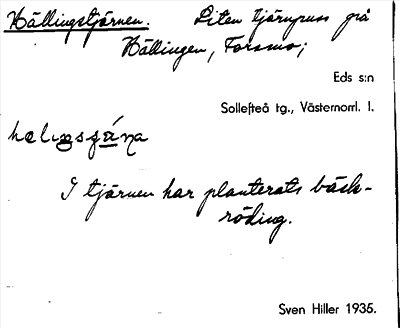 Hällingstjärnen. Liten tjärnpuss på
Hällingen, Forsmo;
Eds s:n
Sollefteå tg., Västernorrl. l.
I tjärnen har planterats bäck-
röding.
Sven Hiller 1935.